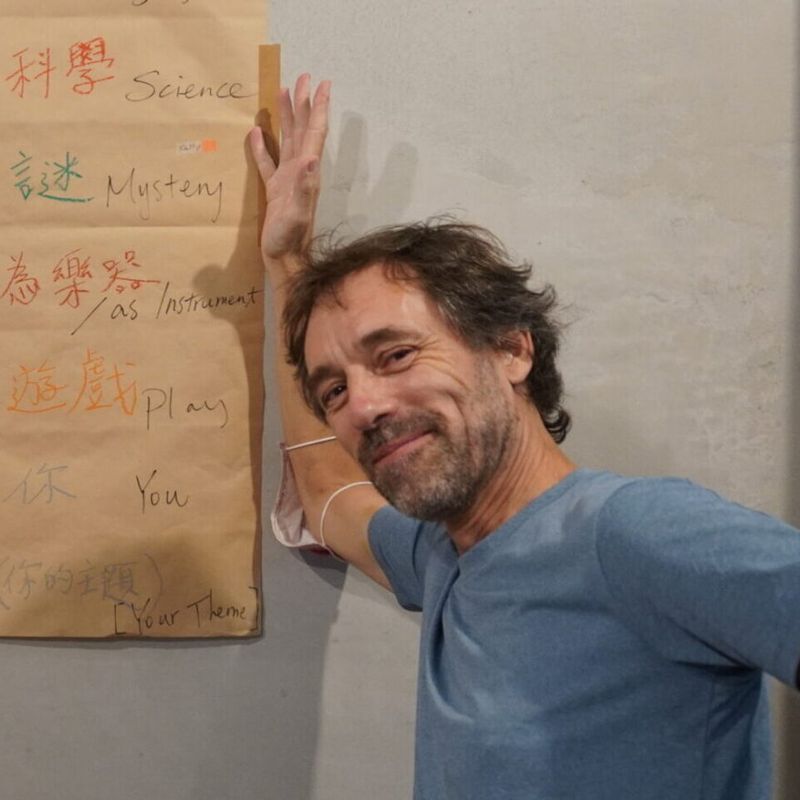 科學 Science
謎 Mystery
為樂器
/as Instrument
遊戲 Play
你 You
(你的主題)
[Your Theme]